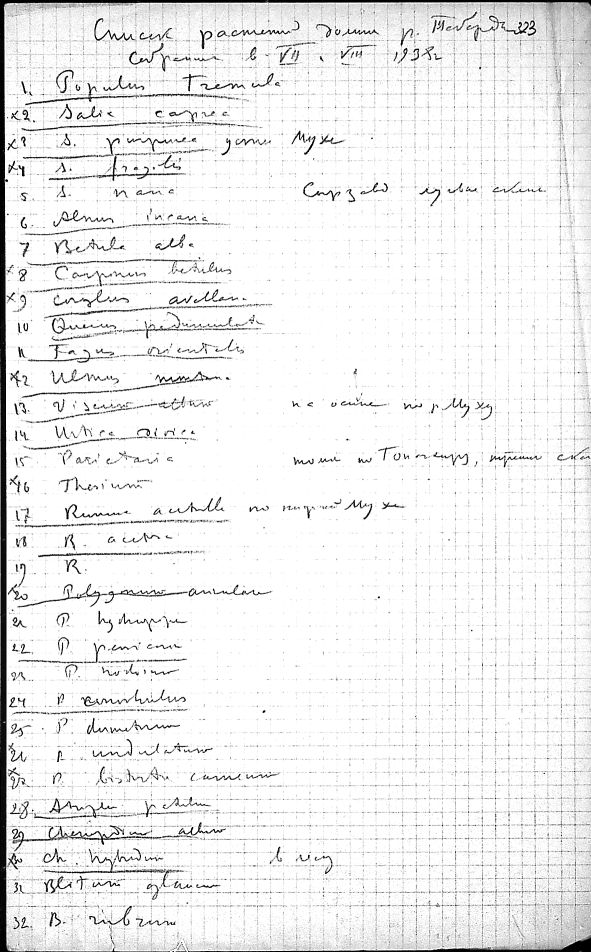 Список растений долины р. Теберды 323
Собранных в VII и VIII 193
1. Populus Tremula
x2. Salix caprea
x3 S. purpurea Мухе
x4 S. fragilis
5 S. nana
6. Alnus incana
7 Betula alba
x8 Carpinus betulus
x9 Corylus avellana
10 Quercus pedunculata
11 Fagus orientalis
x12 Ulmus montana
13. Viscum album на осине по р Муху
14 Urtica dioica
15 Parietaria
x16 Thesium
17 Rumex acetosella по Мухе
18 R. acetosa
19 R.
x20 Polygonum aviculare
21 P. hydropiper
22 P. persicaria
23 P. nodosum
24 P convolvulus
25 P dumetorum
x26 P undulatum
x27 P. bistorta carneum
28. Atriplex patula
29 Chenopodium album
x30 Ch. hybridum в лесу
31 Blitum glaucum
32. B. rubrum